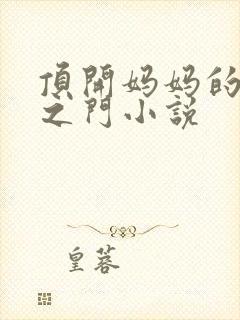 頂開妈妈的
之門小説
皇蓉